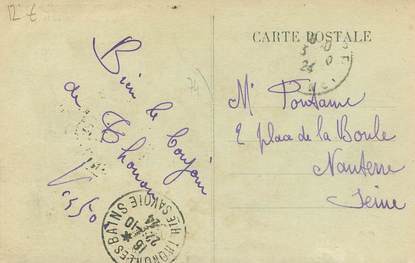 12 €
CARTE POSTALE
Bien le bonjour
de Thonon
74
Mr Fontaine
2 place de la Boule
Nanterre
Seine
THONON-LES-BAINS
Hte SAVOIE
16
22-10
24